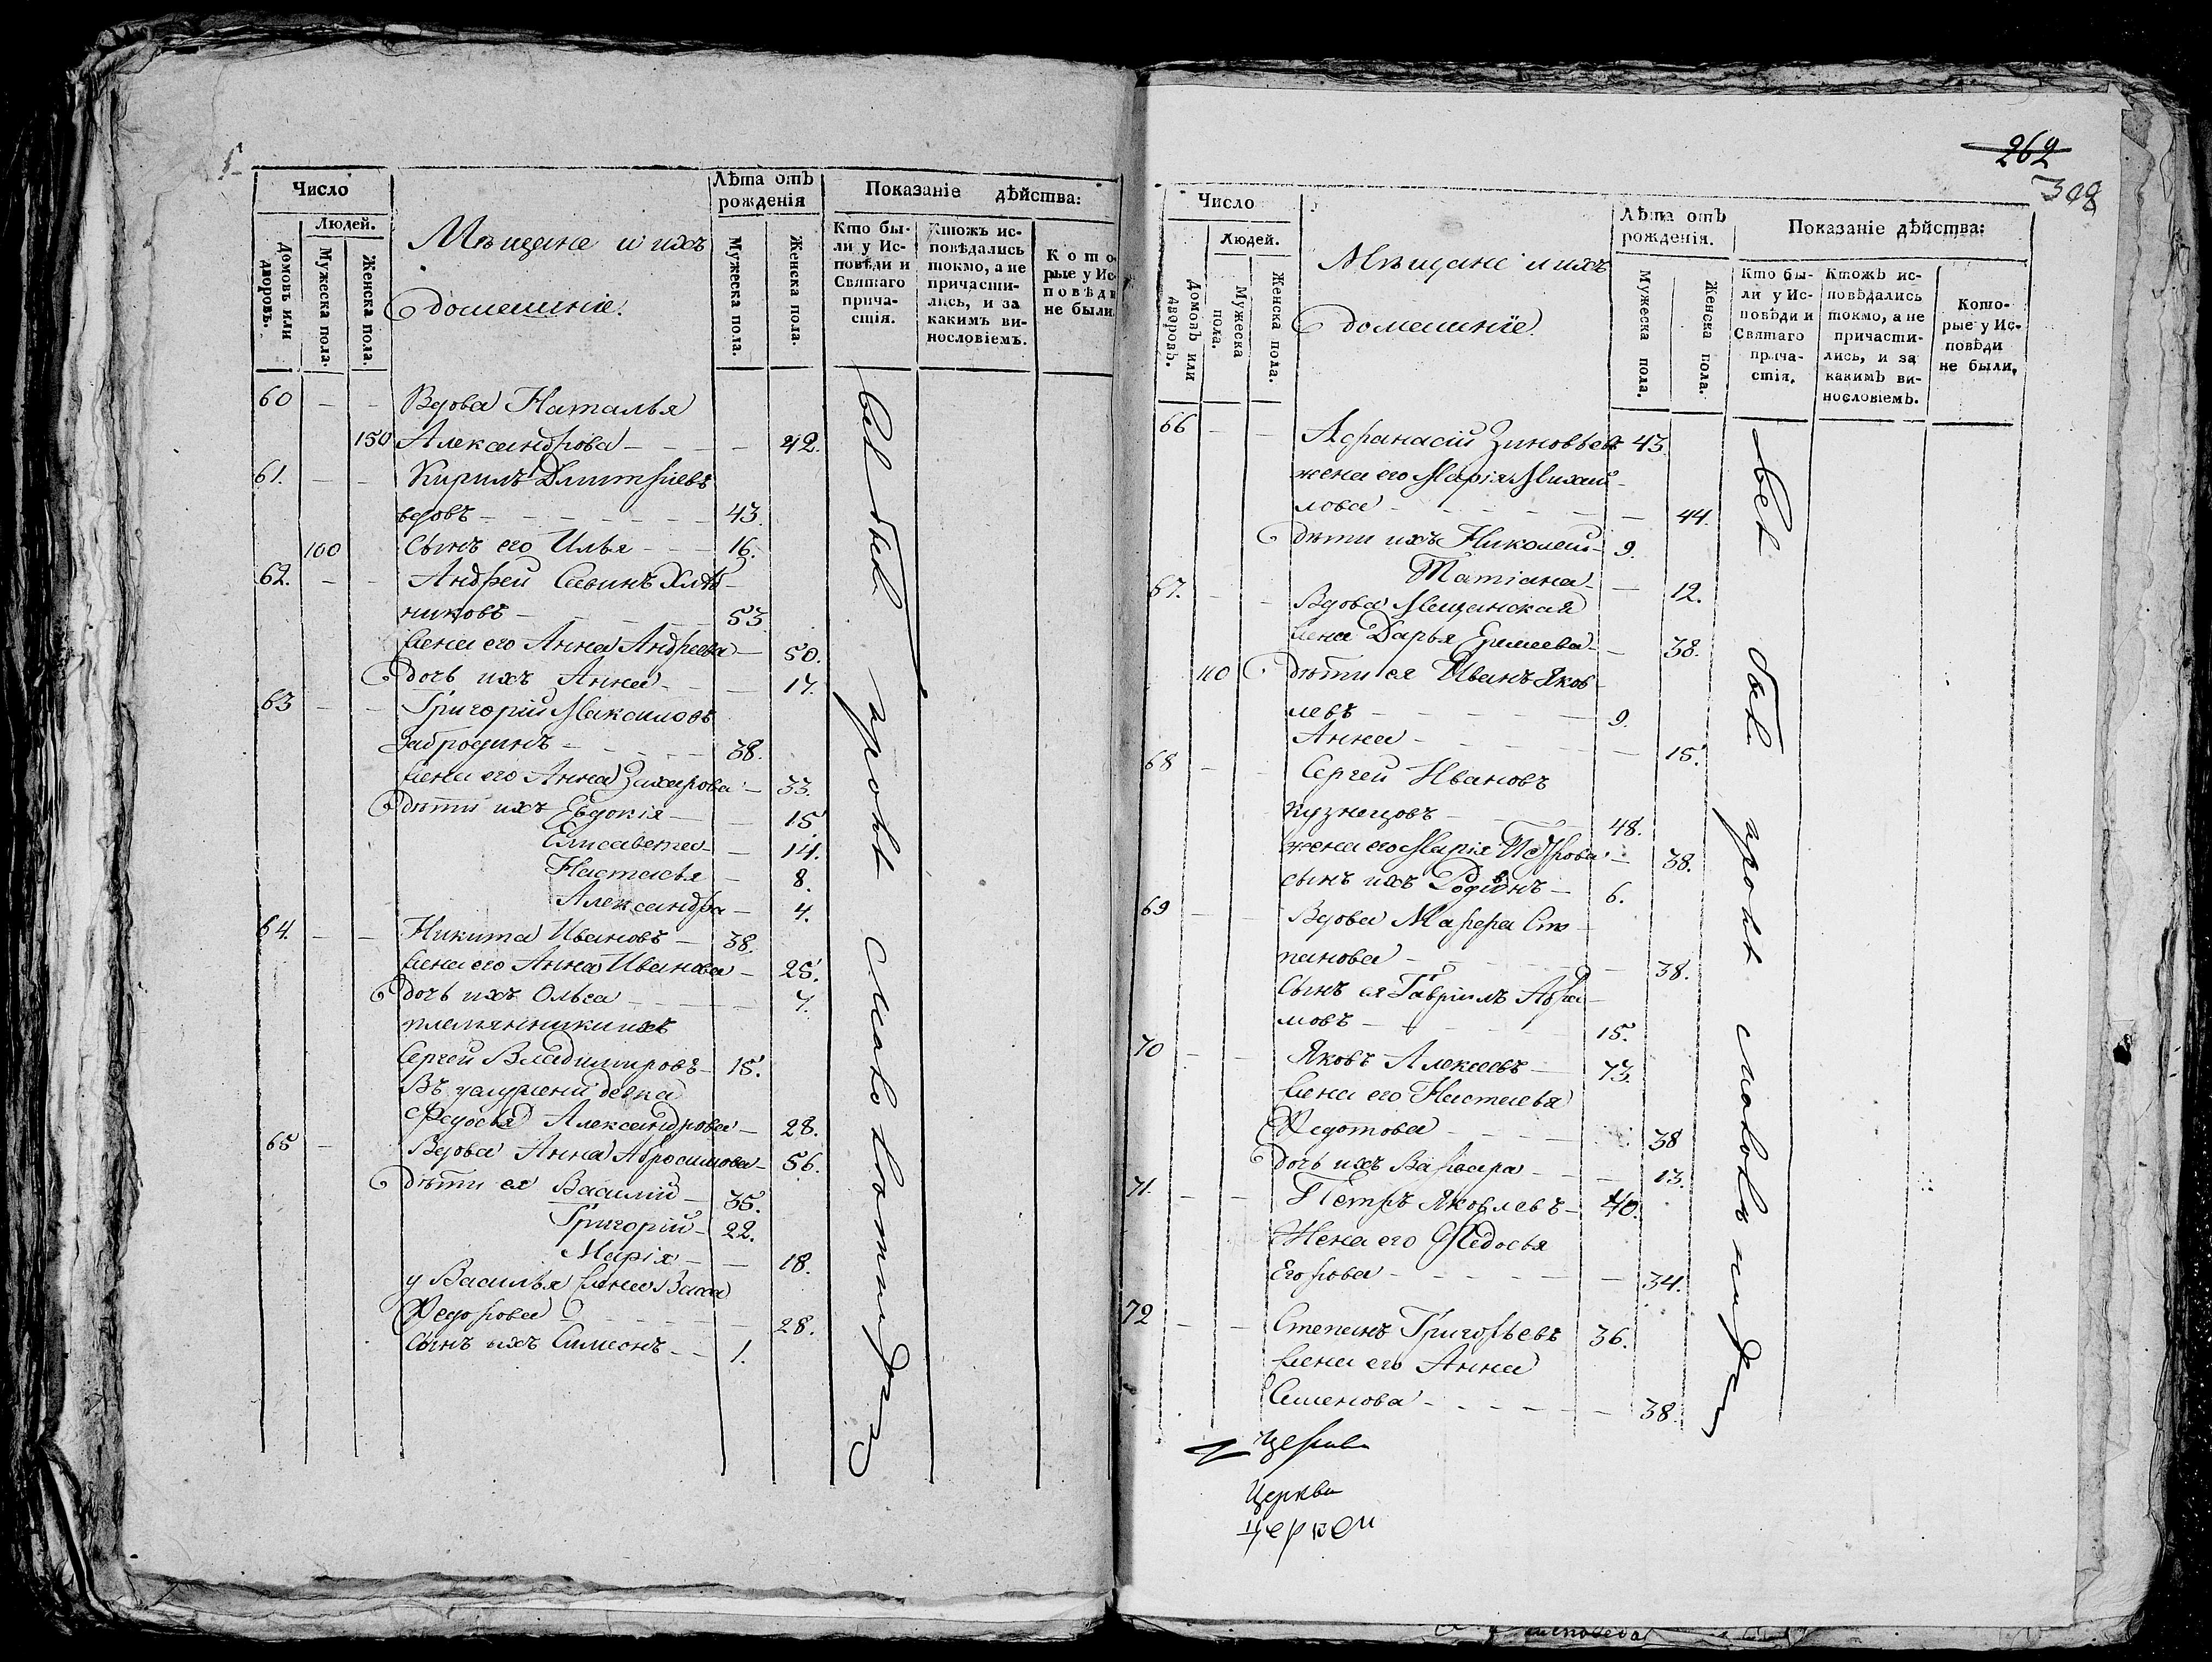 Число
Людей.
Домовъ или дворовъ.
Мужеска пола.
Женска пола.
Мѣщане и ихъ
домашніе.
Лѣта отъ
рожденія
Мужеска пола.
Женска пола.
Показаніе дѣйства:
Кто бы-
ли у Ис-
повѣди и
Святаго
прича-
стія.
Ктожъ ис-
повѣдались
токмо, а не
причасти-
лись, и за
какимъ ви-
нословіемъ.
Кото-
рые у Ис-
повѣди
не были.
60 - - Вдова Наталья
150 Александрова - - - 42.
61. - - Кирилъ Дмитріевъ
вдовъ - - - 43.
100 Сынъ его Илья - - 16.
62. - - Андрей Савинъ Хлѣб-
никовъ - - - 53
жена его Анна Андреева - 50.
дочь ихъ Анна - - 17.
63 - - Григорій Максимовъ
Забродинъ - - - 38.
жена его Анна Захарова - 33.
дѣти ихъ Евдокія - - 15.
Елисавета - - 14.
Настасья - 8.
Александра - 4.
64. - - Никита Ивановъ - 38.
жена его Анна Иванова - 25.
дочь ихъ Ольга - - - 7.
племянники ихъ
Сергей Владимировъ - 15.
Въ услужени девка
Федосья Александрова - 28.
65 - Вдова Анна Абросимова - 56.
дѣти ея Василій - 35.
Григорій - 22.
Марія - - 18.
у Василья жена Васса
Федорова - - - 28.
Сынъ ихъ Симеонъ - - 1.
всѣ
были
262
Число
Людей.
Домовъ или дворовъ.
Мужеска пола.
Женска пола.
Мѣщане и ихъ
домашніе.
Лѣта отъ
рожденія.
Мужеска пола.
Женска пола.
Показаніе дѣйства:
Кто бы-
ли у Ис-
повѣди и
Святаго
прича-
стія.
Ктожъ ис-
повѣдались
токмо, а не
причасти-
лись, и за
какимъ ви-
нословіемъ.
Кото-
рые у Ис-
повѣди
не были.
66 - - Афанасій Зиновьевъ 43.
жена его Марія Михай-
лова - - - 44.
дѣти ихъ Николай - 9.
Татіана - - 12.
67. - - Вдова Мещанская
жена Дарья Ермеева - - 38.
110 дѣти ея Иванъ Яков-
левъ - - - 9.
Анна - - - 15.
68 - - Сергей Ивановъ
Кузнецовъ - - - 48.
жена его Марія Петрова - 38.
сынъ ихъ Родіонъ - 6.
69 - - Вдова Марфа Сте-
панова - - - 38.
Сынъ ея Гавріилъ Абра-
мовъ - - - 15.
70 - - Яковъ Алексеевъ - 73.
жена его Настасья
Федотова - - - 38
дочь ихъ Варвара - - 13.
71. - - Петръ Яковлевъ - 40.
Жена его Федосья
Егорова - - - 34.
72 - - Степанъ Григорьевъ 36.
жена его Анна
Семенова - - - 38.
всѣ
были
Церкви
Церкви
Церкви